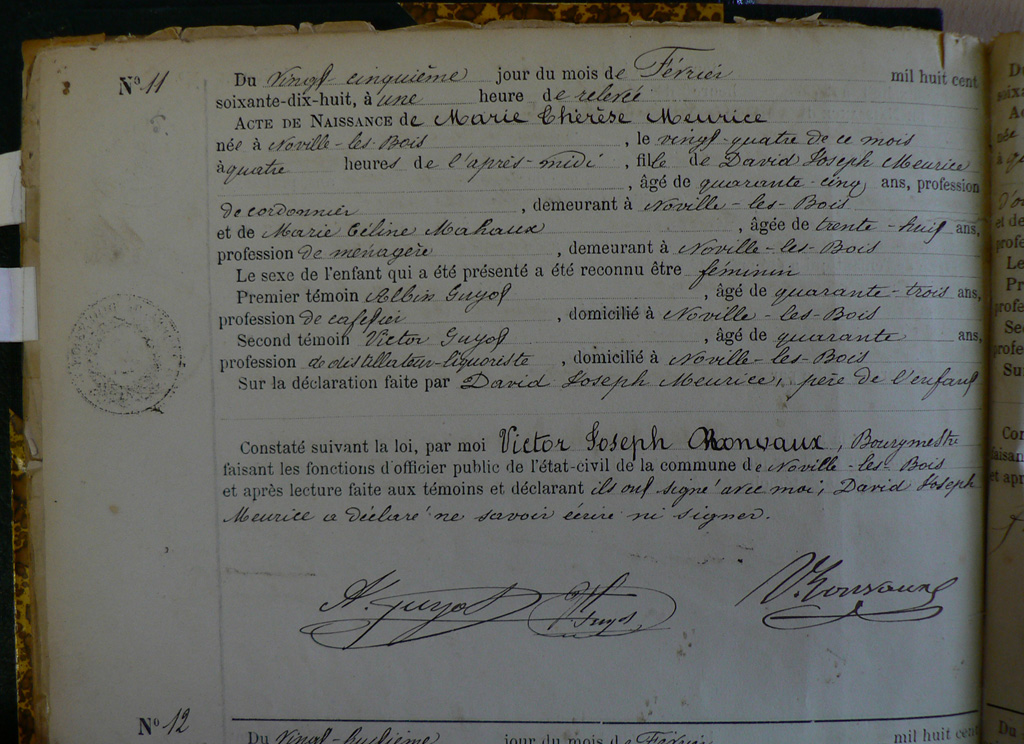 Nº 11
Du Vingt cinquième jour du mois de Février mil huit cent
soixante-dix-huit, à une heure de relevée
ACTE DE NAISSANCE de Marie Thérèse Meurice
née à Noville-les-Bois, le vingt-quatre de ce mois
à quatre heures de l'après-midi, fille de David Joseph Meurice
, âgé de quarante-cinq ans, profession
de cordonnier, demeurant à Noville-les-Bois
et de Marie Céline Mahaux, âgée de trente-huit ans,
profession de ménagère, demeurant à Noville-les-Bois
Le sexe de l'enfant qui a été présenté a été reconnu être féminin
Premier témoin Albin Guyot, âgé de quarante-trois ans,
profession de cafetier, domicilié à Noville-les-Bois
Second témoin Victor Guyot, âgé de quarante ans,
profession de distillateur-liquoriste, domicilié à Noville-les-Bois
Sur la déclaration faite par David Joseph Meurice, père de l'enfant
Constaté suivant la loi, par moi Victor Joseph Ronvaux, Bourgmestre
faisant les fonctions d'officier public de l'état-civil de la commune de Noville-les-Bois
et après lecture faite aux témoins et déclarant ils ont signé avec moi; David Joseph
Meurice a déclaré ne savoir écrire ni signer.
A. Guyot V Guyot V. Ronvaux
Nº 12
Du Vingt-huitième jour du mois de Février mil huit cent